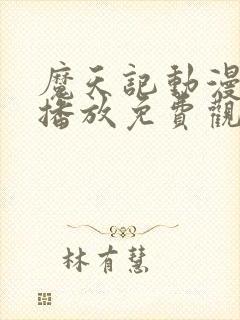 魔天記動漫
播放免費觀
林有慧